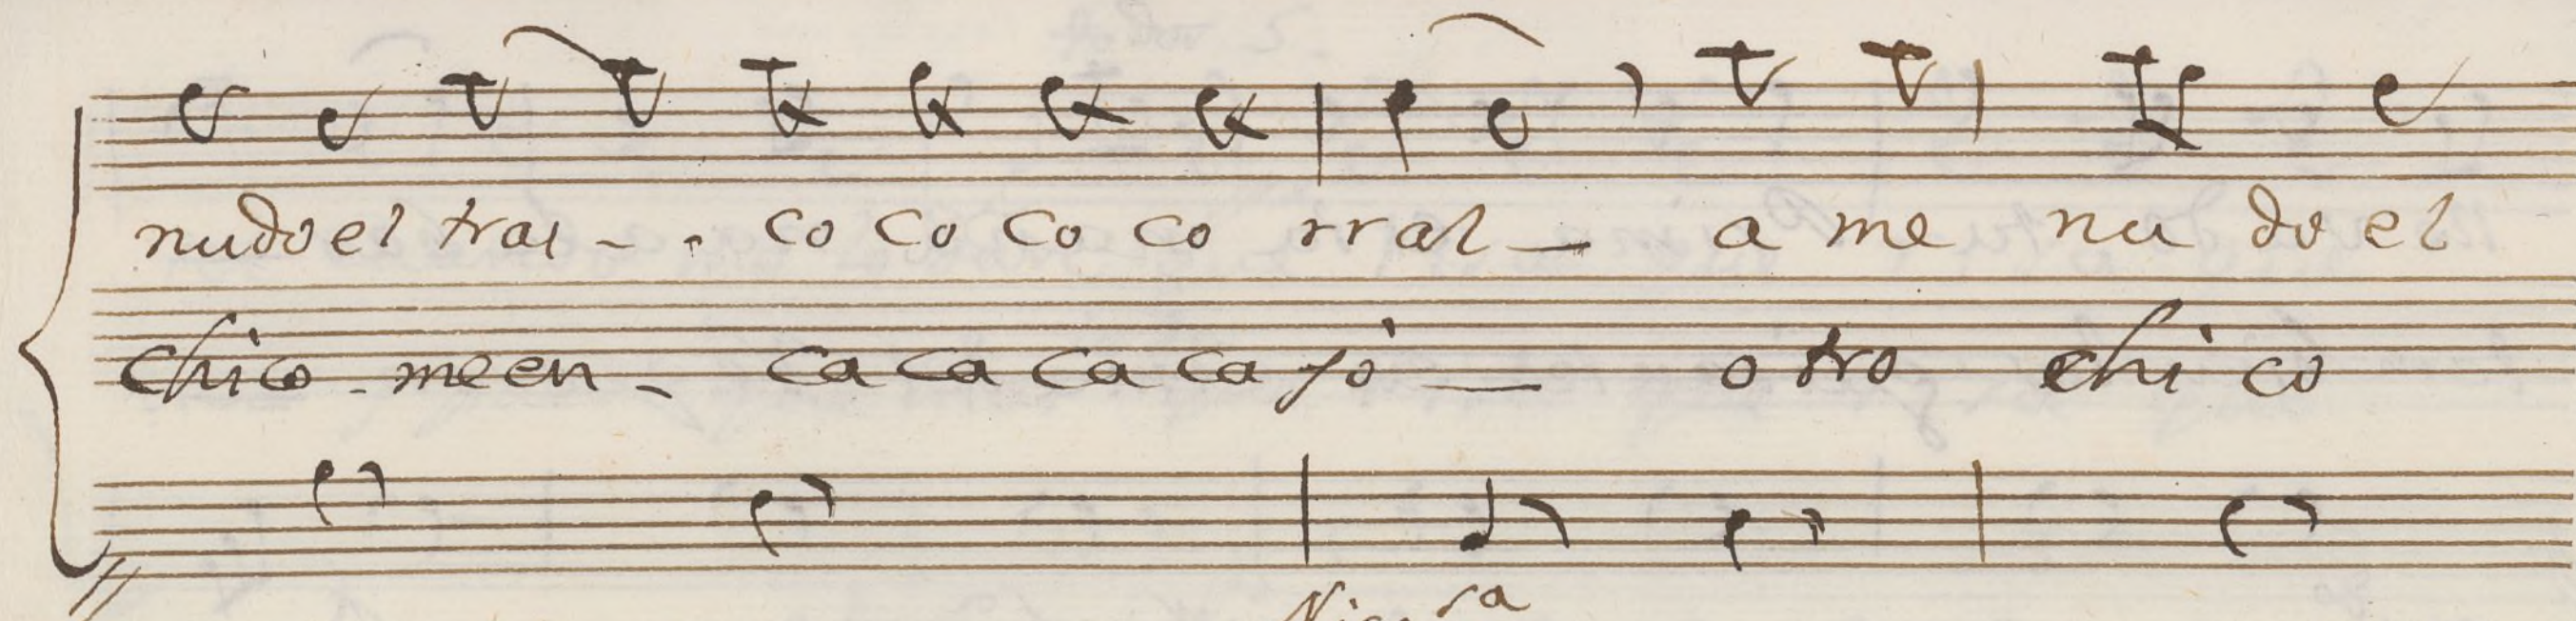 nudo el trai - . co co co co rral — a me nu do el
chico - me en - ca ca ca ca jó — o tro chi co